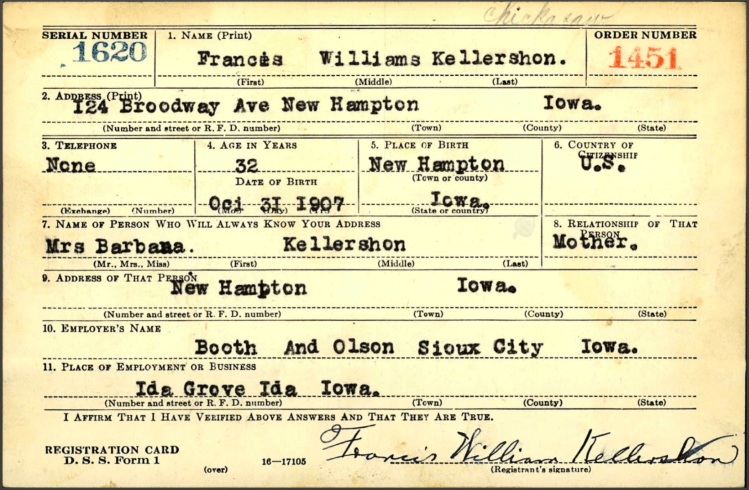 Chickasaw
SERIAL NUMBER 1. NAME (Print) ORDER NUMBER
1620 Francis Williams Kellershon. 1451
(First) (Middle) (Last)
2. ADDRESS (Print)
124 Broodway Ave New Hampton Iowa.
(Number and street or R. F. D. number) (Town) (County) (State)
3. TELEPHONE 4. AGE IN YEARS 5. PLACE OF BIRTH 6. COUNTRY OF CITIZENSHIP
None 32 New Hampton U.S.
(Town or county)
DATE OF BIRTH
Oci 31 1907 Iowa.
(Exchange) (Number) (Mo.) (Day) (Yr.) (State or country)
7. NAME OF PERSON WHO WILL ALWAYS KNOW YOUR ADDRESS 8. RELATIONSHIP OF THAT PERSON
Mrs Barbaaa. Kellershon Mother.
(Mr., Mrs., Miss) (First) (Middle) (Last)
9. ADDRESS OF THAT PERSON
New Hampton Iowa.
(Number and street or R. F. D. number) (Town) (County) (State)
10. EMPLOYER'S NAME
Booth And Olson Sioux City Iowa.
11. PLACE OF EMPLOYMENT OR BUSINESS
Ida Grove Ida Iowa.
(Number and street or R. F. D. number) (Town) (County) (State)
I AFFIRM THAT I HAVE VERIFIED ABOVE ANSWERS AND THAT THEY ARE TRUE.
REGISTRATION CARD Francis William Kellershon
D. S. S. Form 1 (over) 16—17105 (Registrant's signature)